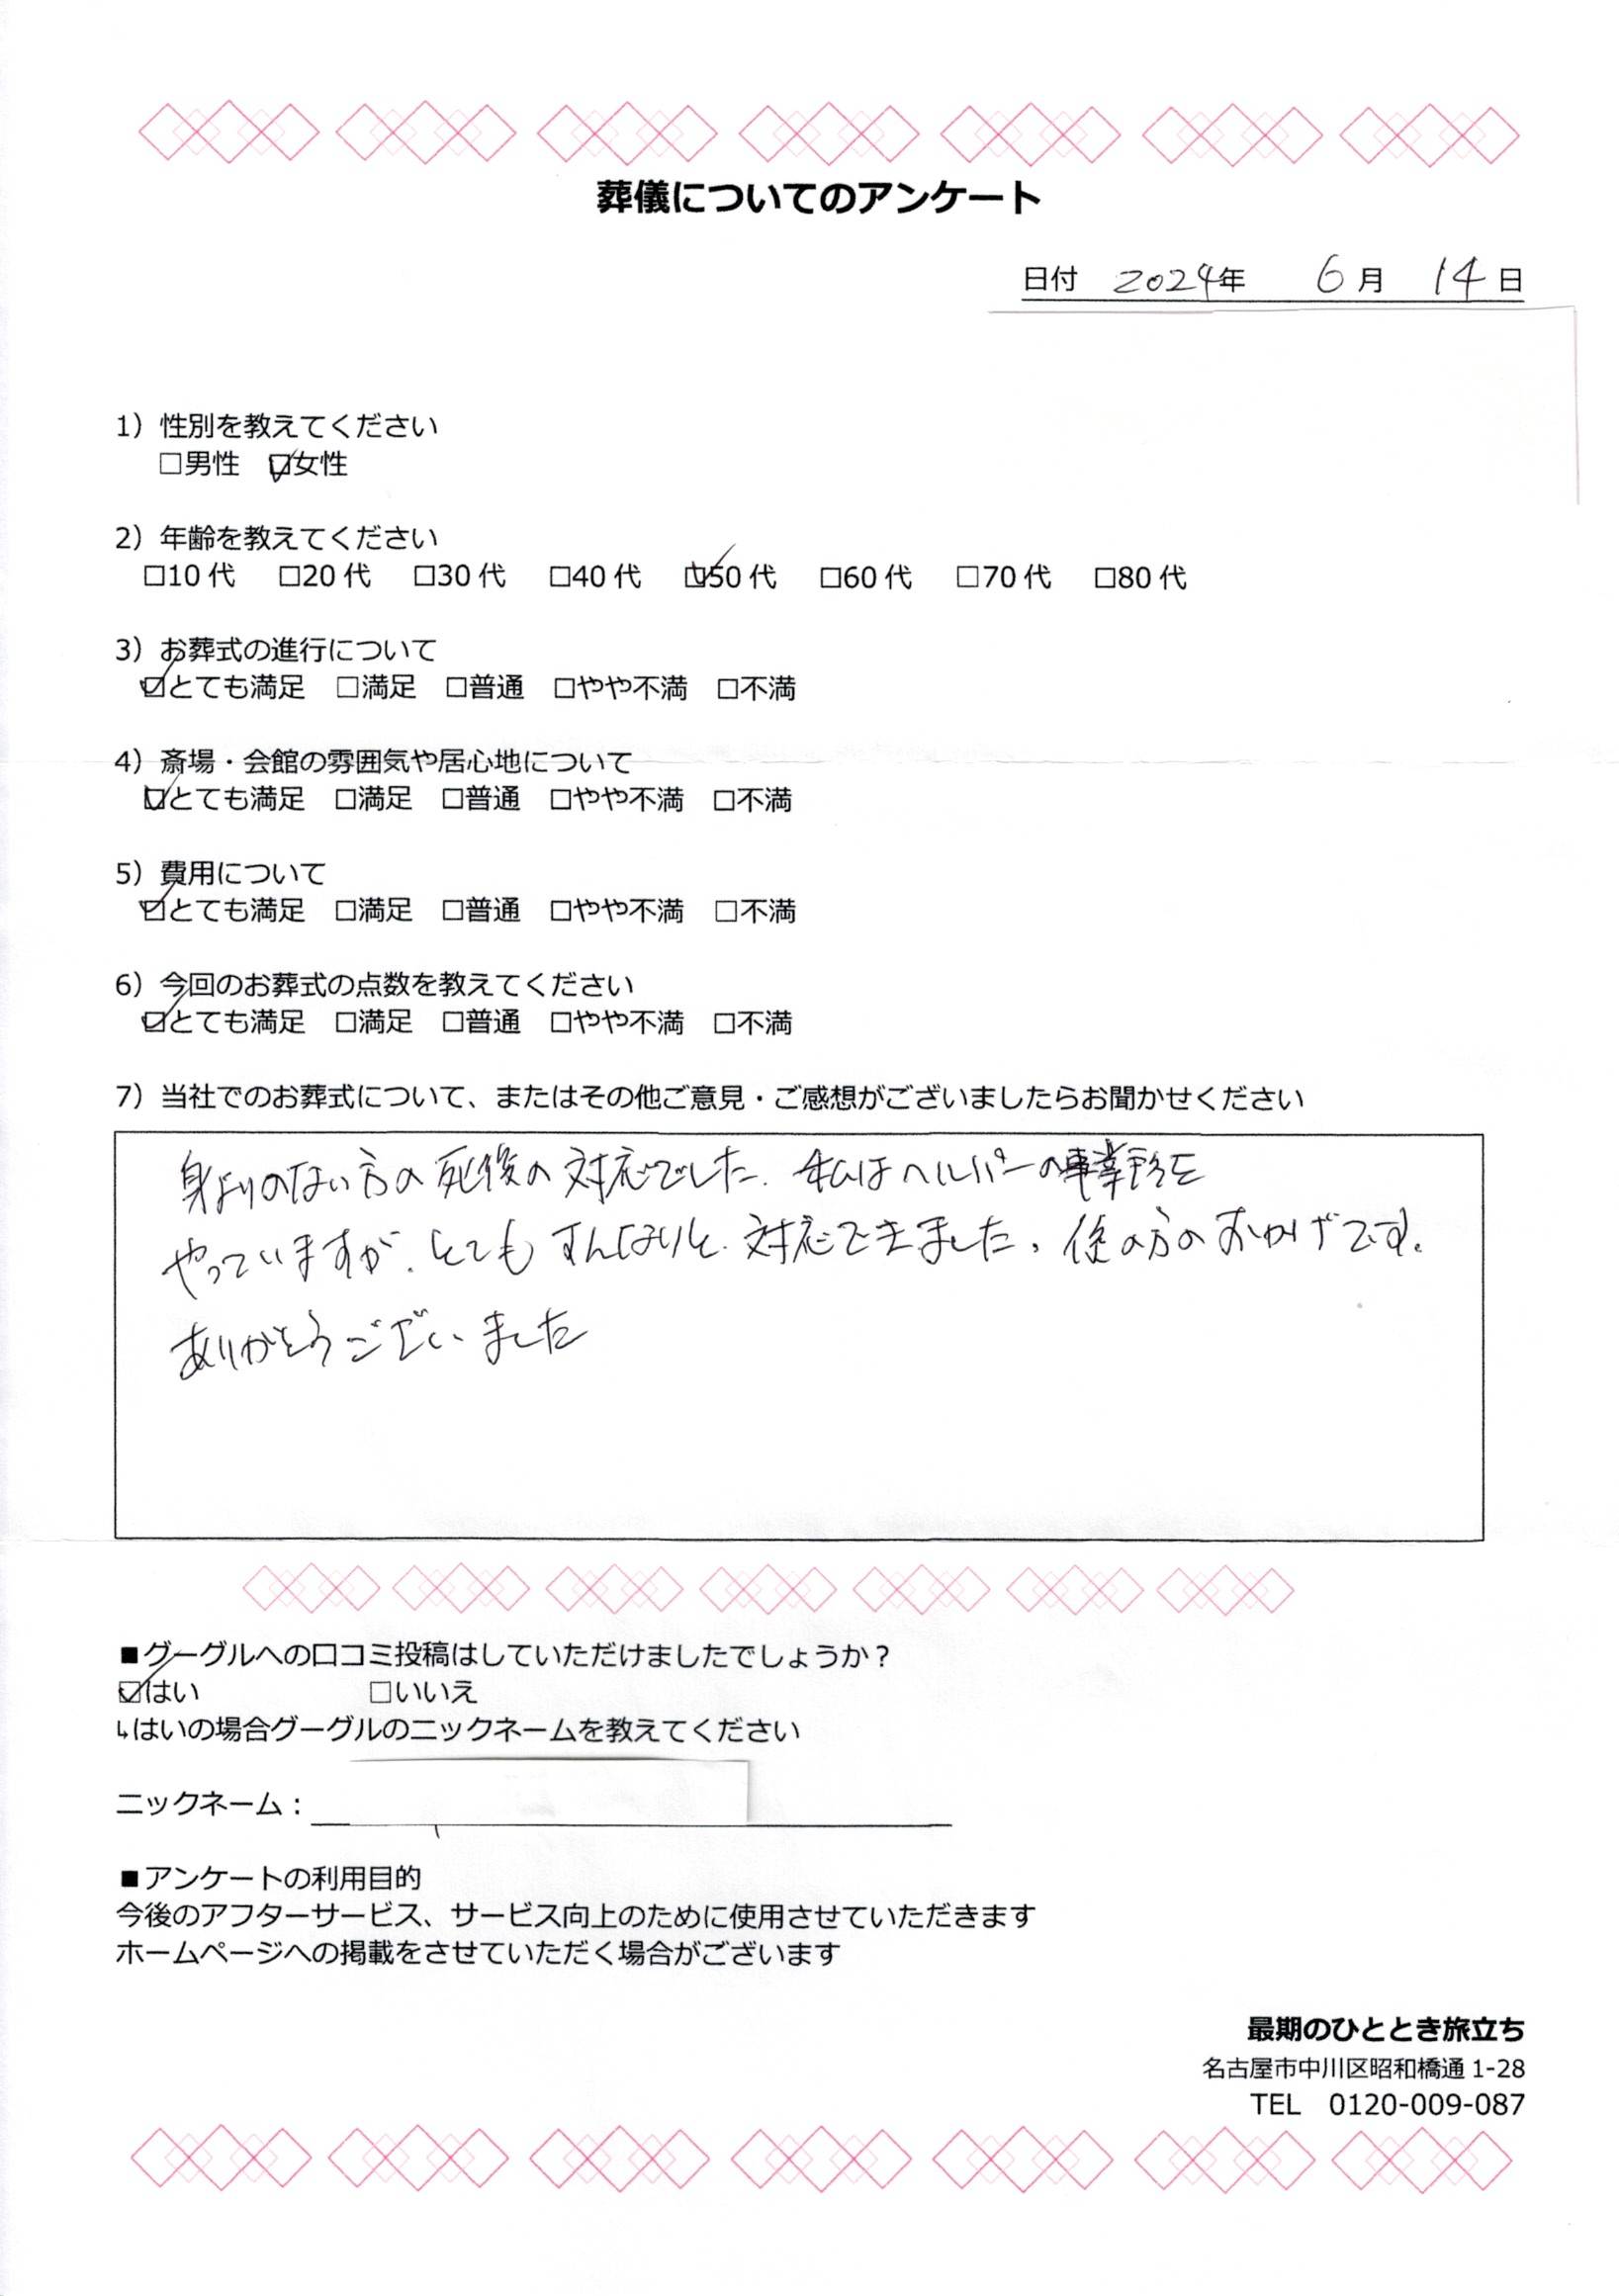 葬儀についてのアンケート
日付 2024年 6月 14日
1）性別を教えてください
□男性 ☑女性
2）年齢を教えてください
□10代 □20代 □30代 □40代 ☑50代 □60代 □70代 □80代
3）お葬式の進行について
☑とても満足 □満足 □普通 □やや不満 □不満
4）斎場・会館の雰囲気や居心地について
☑とても満足 □満足 □普通 □やや不満 □不満
5）費用について
☑とても満足 □満足 □普通 □やや不満 □不満
6）今回のお葬式の点数を教えてください
☑とても満足 □満足 □普通 □やや不満 □不満
7）当社でのお葬式について、またはその他ご意見・ご感想がございましたらお聞かせください
身よりのない方の死後の対応でした。私はヘルパーの事業所を
やっていますが、とてもすんなりと対応できました。の方のおかげです。
ありがとうございました
■グーグルへの口コミ投稿はしていただけましたでしょうか？
☑はい □いいえ
↳はいの場合グーグルのニックネームを教えてください
ニックネーム：
■アンケートの利用目的
今後のアフターサービス、サービス向上のために使用させていただきます
ホームページへの掲載をさせていただく場合がございます
最期のひととき旅立ち
名古屋市中川区昭和橋通1-28
TEL 0120-009-087